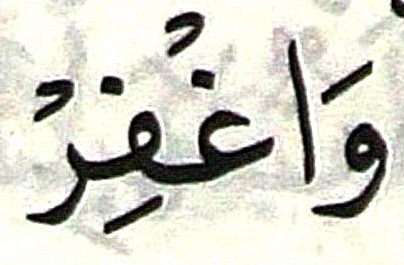 وَاغْفِرْ